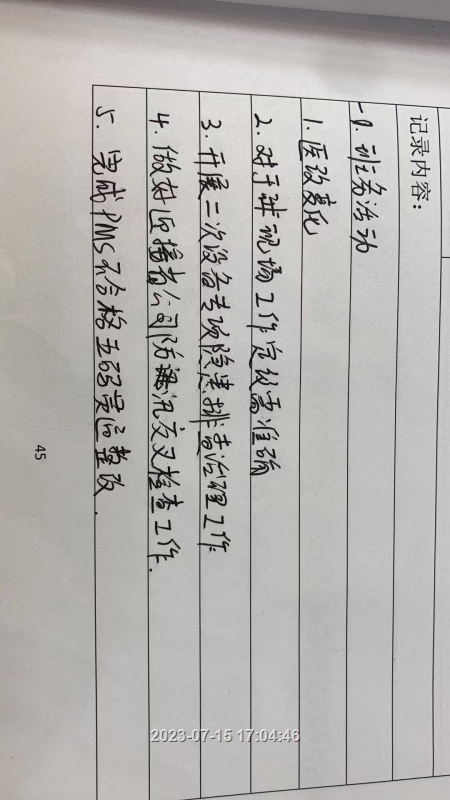 记录内容：
一、班务活动
1. 医改变化
2. 对于 现场工作定级需准确
3. 开展二次设备专项隐患排查治理工作
4. 做好迎接省公司防汛交叉检查工作.
5. 完成PMS不合格 整改.
45
2023-07-15 17:04:46